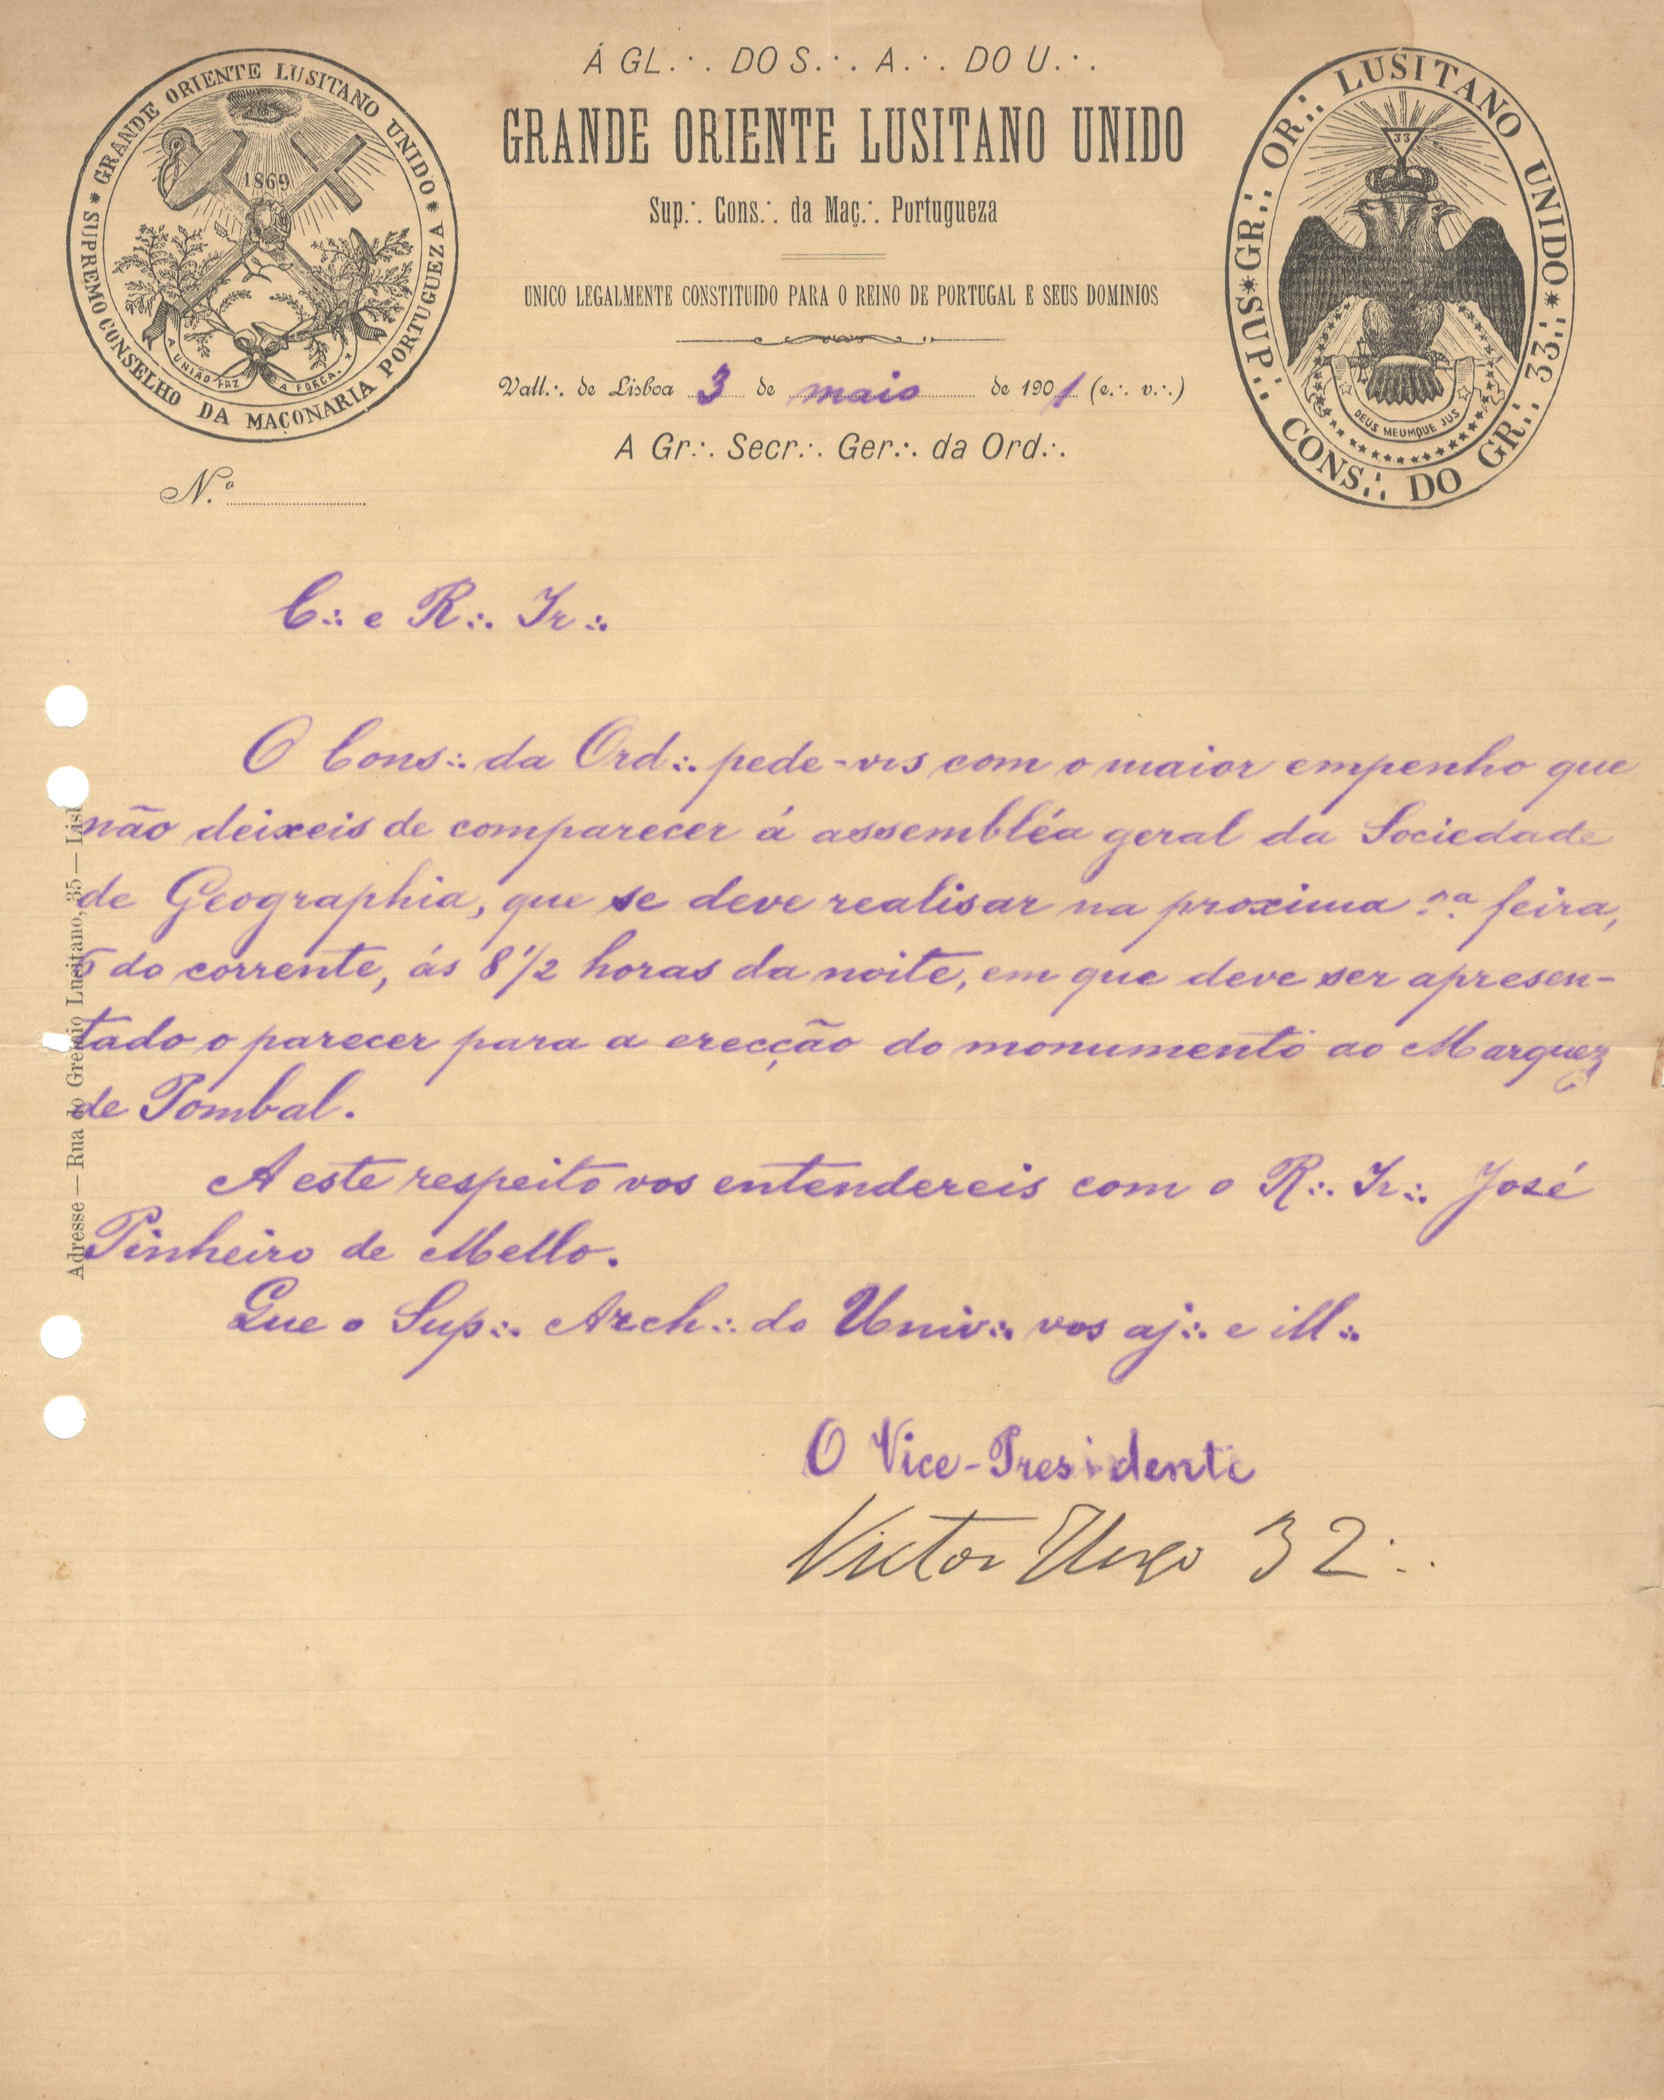 Á GL.·. DO S.·. A.·. DO U.·.
GRANDE ORIENTE LUSITANO UNIDO
Sup.·. Cons.·. da Maç.·. Portugueza
UNICO LEGALMENTE CONSTITUIDO PARA O REINO DE PORTUGAL E SEUS DOMINIOS
Vall.·. de Lisboa 3 de maio de 1901 (e.·. v.·.)
A Gr.·. Secr.·. Ger.·. da Ord.·.
N.º
GRANDE ORIENTE LUSITANO UNIDO
SUPREMO CONSELHO DA MAÇONARIA PORTUGUEZA
1869
A UNIÃO FAZ A FORÇA
SUP.·. CONS.·. DO GR.·. 33.·.
GR.·. OR.·. LUSITANO UNIDO
33
DEUS MEUMQUE JUS
C.·. e R.·. Ir.·.
O Cons.·. da Ord.·. pede-vos com o maior empenho que
não deixeis de comparecer á assembléa geral da Sociedade
de Geographia, que se deve realisar na proxima ª feira,
do corrente, ás 8 1/2 horas da noite, em que deve ser apresen-
tado o parecer para a erecção do monumento ao Marquez
de Pombal.
A este respeito vos entendereis com o R.·. Ir.·. José
Pinheiro de Mello.
Que o Sup.·. Arch.·. do Univ.·. vos aj.·. e ill.·.
O Vice-Presidente
Victor Hugo 32.·.
Adresse — Rua do Gremio Lusitano, 35 — Lisb